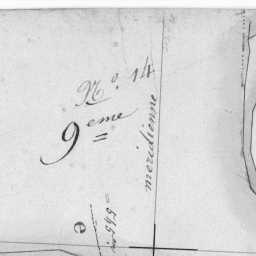 N.° 14
9eme
meridienne
e